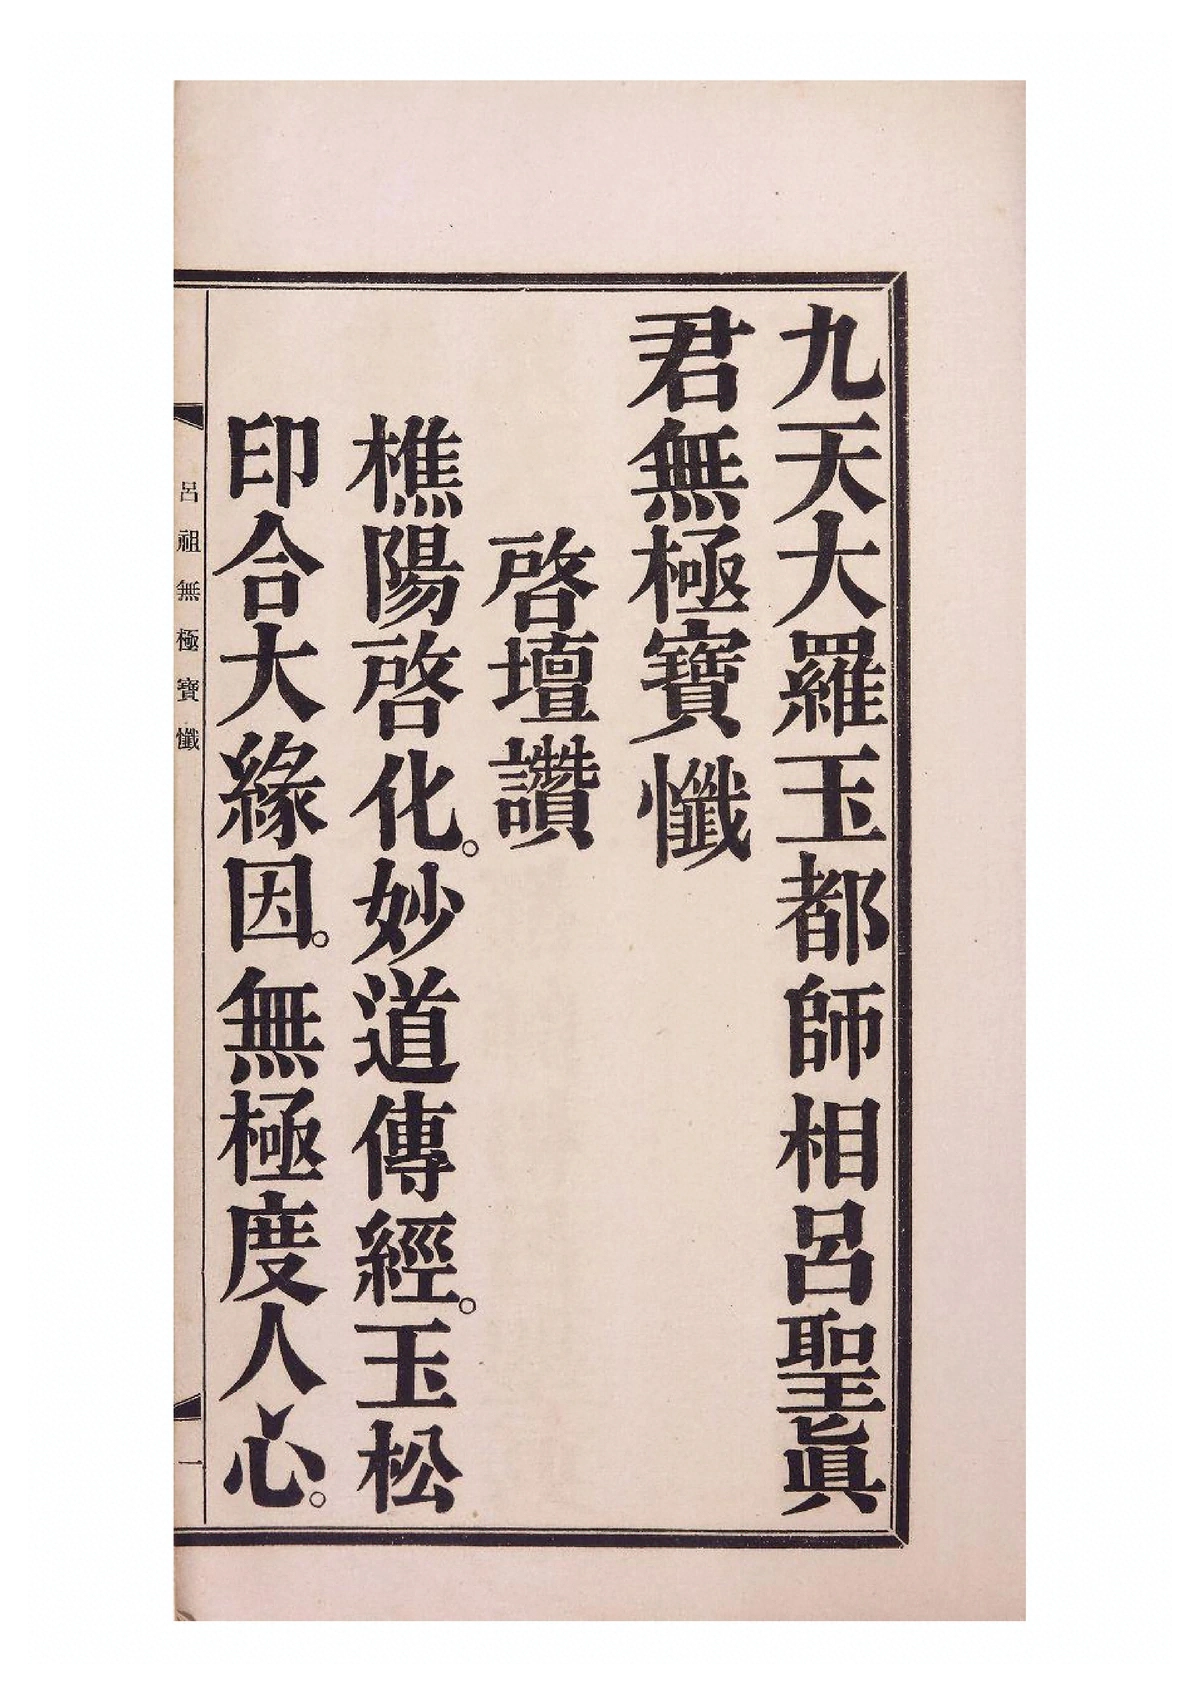 九天大羅玉都師相呂聖眞
君無極寶懺
啓壇讚
樵陽啓化。妙道傳經。玉松
印合大緣因。無極度人心。
呂祖無極寶懺
一